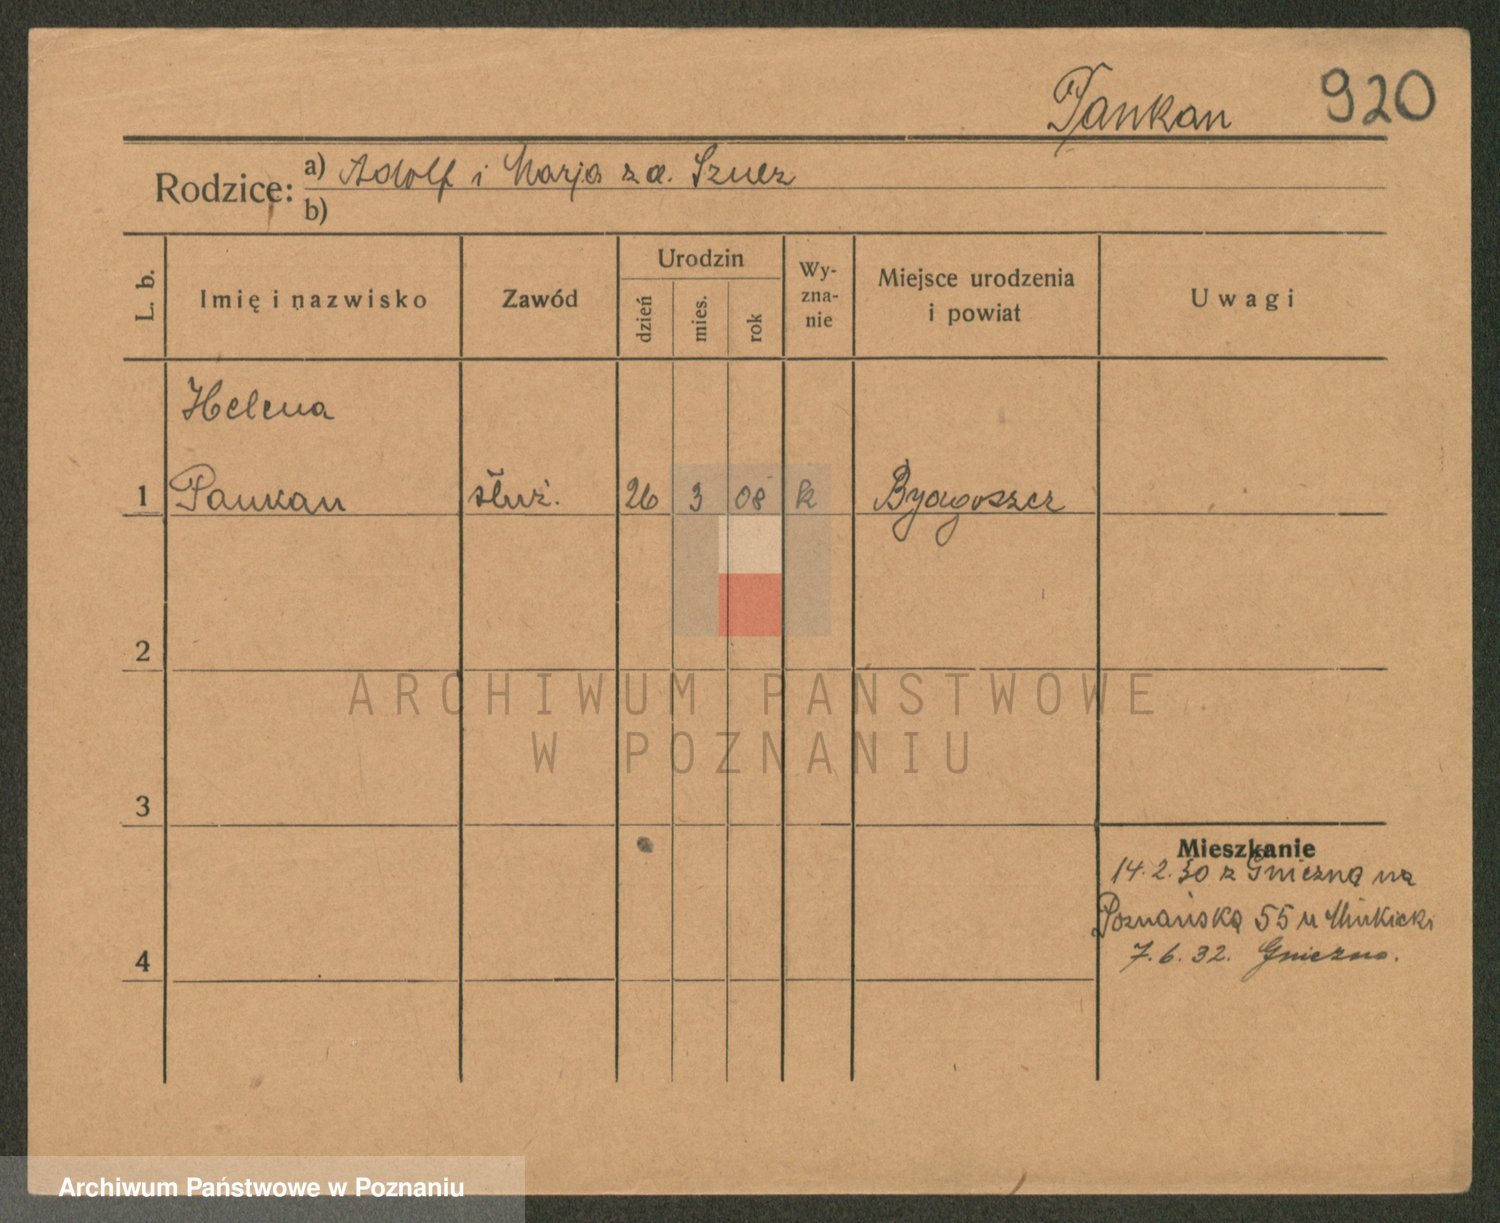 Pankan 920
Rodzice: a) Adolf i Marja z d. Szulz
b)
L. b. Imię i nazwisko Zawód Urodzin dzień mies. rok Wy-zna-nie Miejsce urodzenia i powiat Uwagi
Helena
1 Pankan służ. 26 3 08 k Bydgoszcz
2
ARCHIWUM PAŃSTWOWE
W POZNANIU
3
Mieszkanie
14.2.30 z Gniezna na
Poznańską 55 u
4
7.6.32. Gniezno.
Archiwum Państwowe w Poznaniu